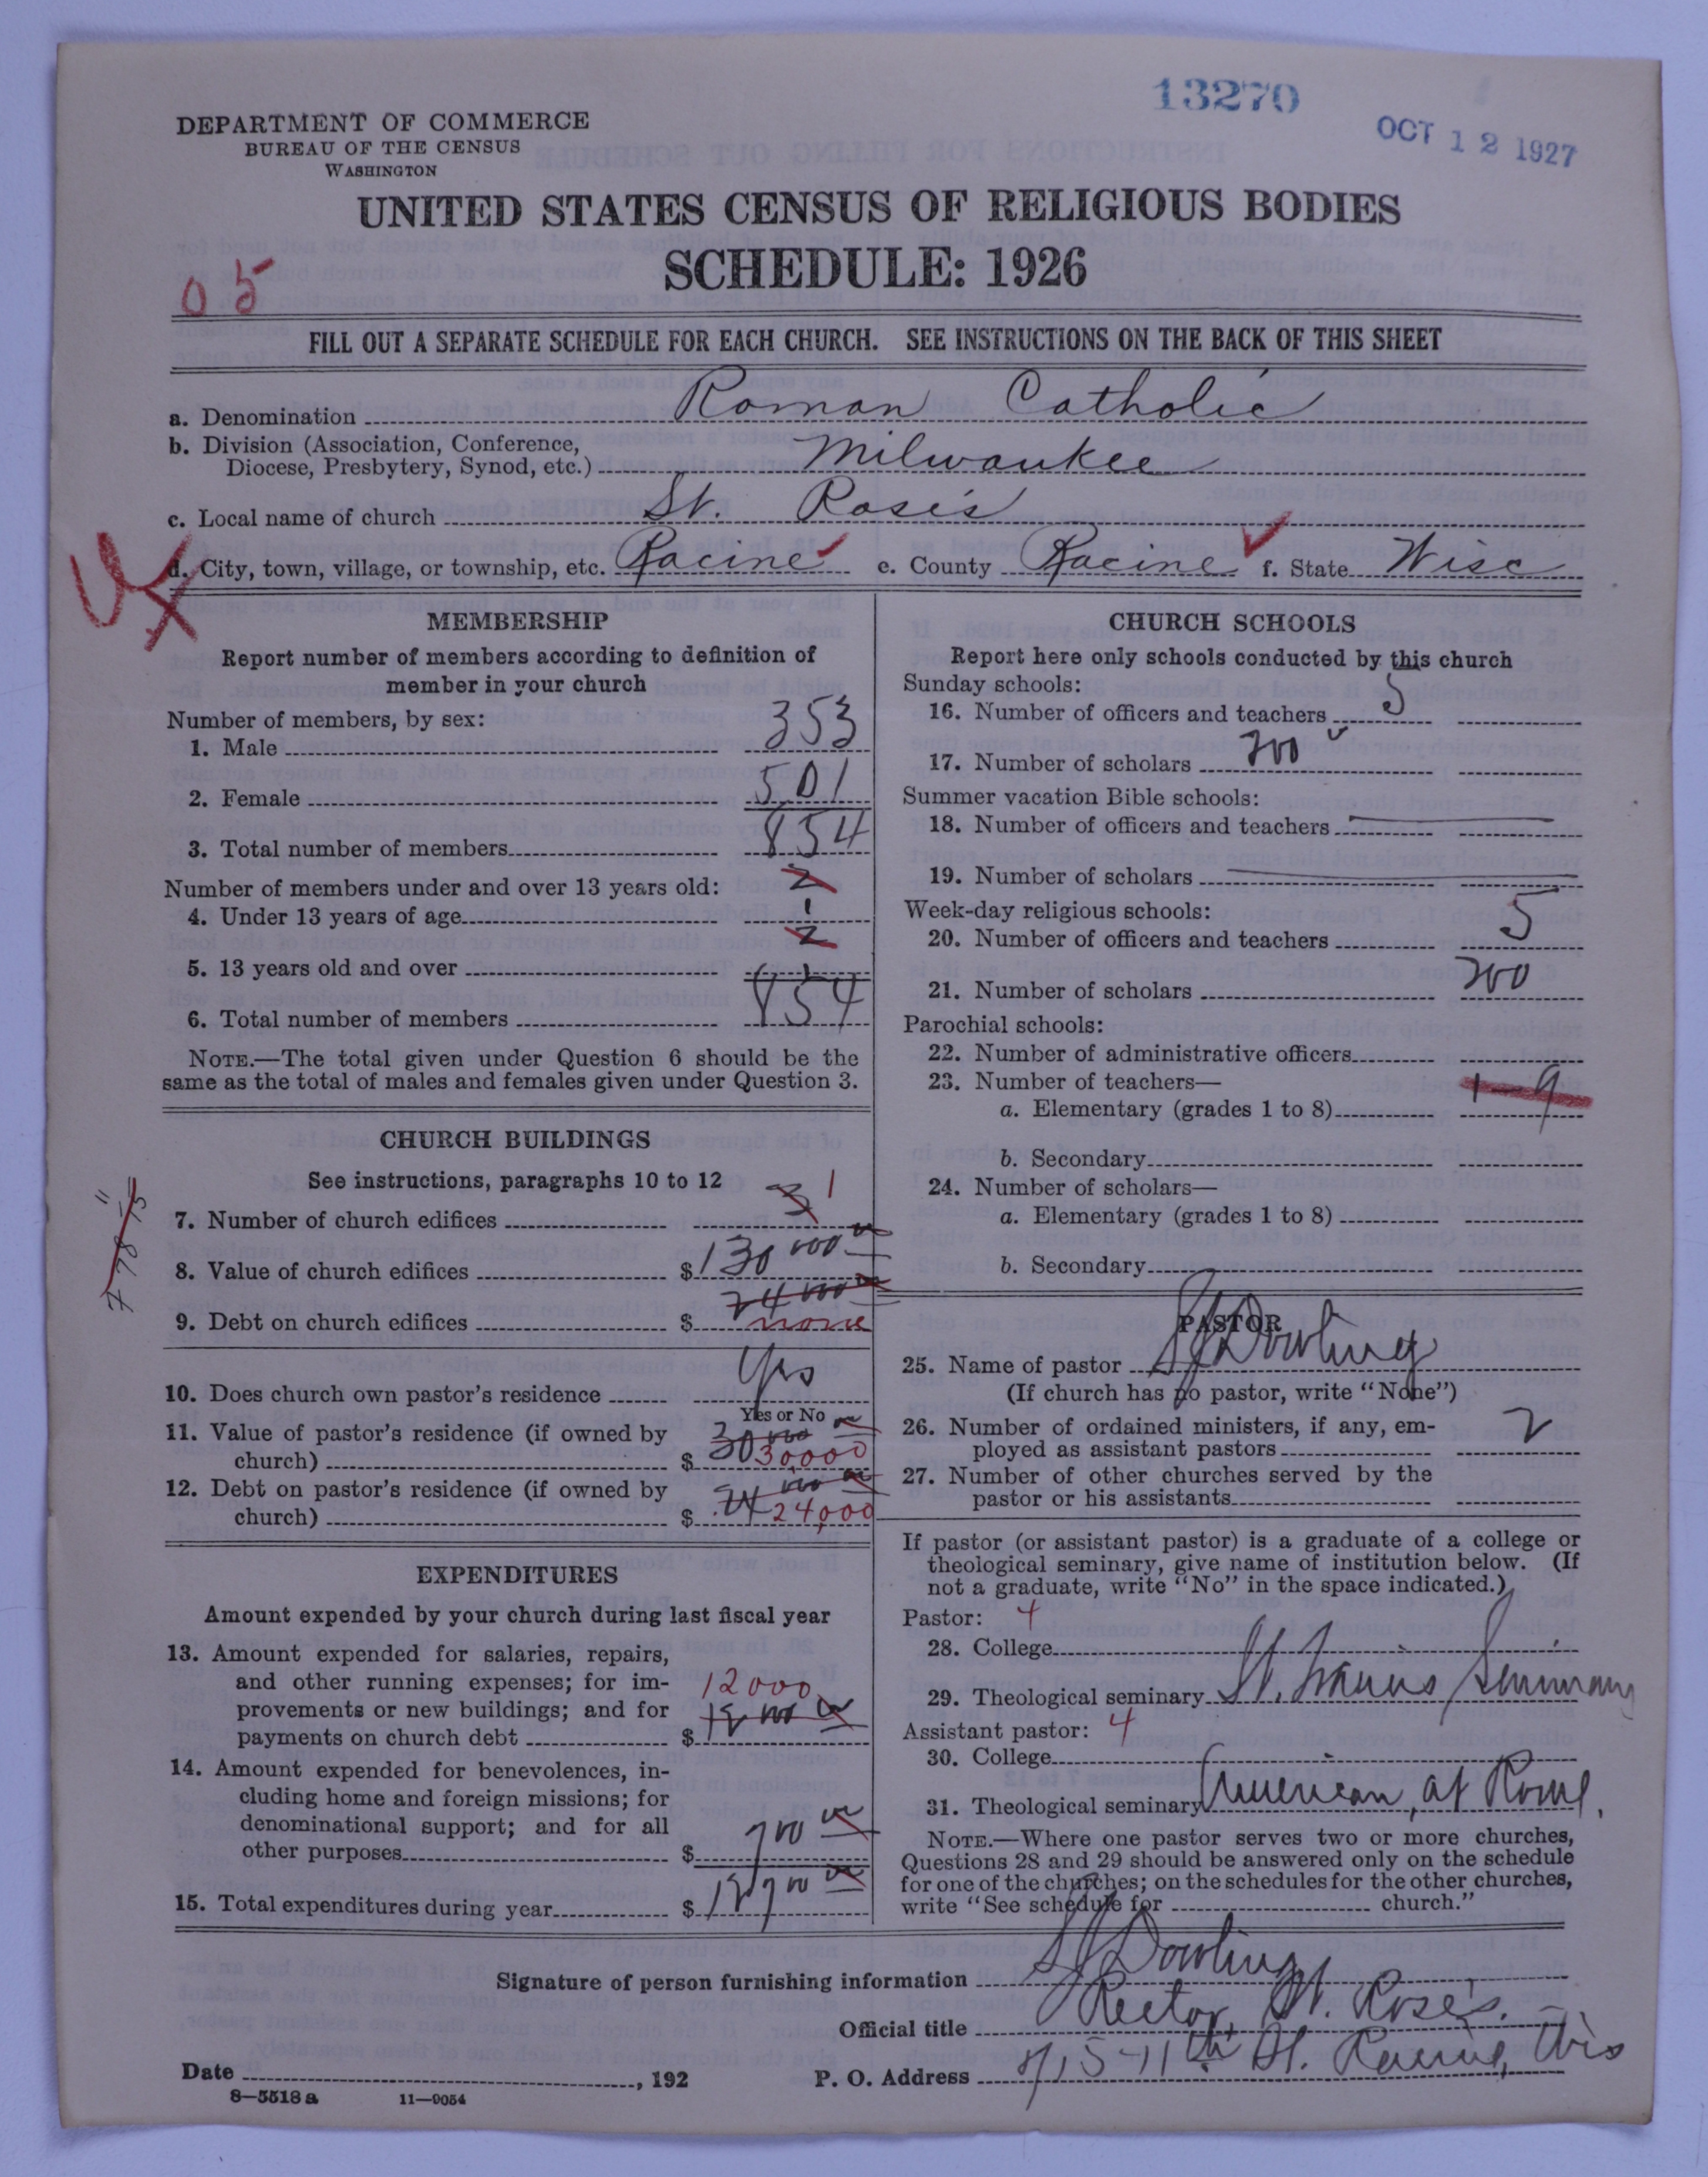 13270
OCT 12 1927
DEPARTMENT OF COMMERCE
BUREAU OF THE CENSUS
WASHINGTON
UNITED STATES CENSUS OF RELIGIOUS BODIES
SCHEDULE: 1926
05
FILL OUT A SEPARATE SCHEDULE FOR EACH CHURCH. SEE INSTRUCTIONS ON THE BACK OF THIS SHEET
a. Denomination Roman Catholic
b. Division (Association, Conference,
Diocese, Presbytery, Synod, etc.) Milwaukee
c. Local name of church St. Rose's
d. City, town, village, or township, etc. Racine e. County Racine f. State Wisc
MEMBERSHIP
Report number of members according to definition of
member in your church
Number of members, by sex:
1. Male 353
2. Female 501
3. Total number of members 854
Number of members under and over 13 years old:
4. Under 13 years of age
5. 13 years old and over
6. Total number of members 854
NOTE.—The total given under Question 6 should be the
same as the total of males and females given under Question 3.
CHURCH BUILDINGS
See instructions, paragraphs 10 to 12
7. Number of church edifices 3 1
8. Value of church edifices $ 130 000
9. Debt on church edifices $ 24 000 none
10. Does church own pastor's residence Yes
Yes or No
11. Value of pastor's residence (if owned by
church) $ 30 000 30,000
12. Debt on pastor's residence (if owned by
church) $ 24 000 24,000
EXPENDITURES
Amount expended by your church during last fiscal year
13. Amount expended for salaries, repairs,
and other running expenses; for im-
provements or new buildings; and for
payments on church debt $ 12000
14. Amount expended for benevolences, in-
cluding home and foreign missions; for
denominational support; and for all
other purposes $ 700
15. Total expenditures during year $
CHURCH SCHOOLS
Report here only schools conducted by this church
Sunday schools:
16. Number of officers and teachers 5
17. Number of scholars 200
Summer vacation Bible schools:
18. Number of officers and teachers
19. Number of scholars
Week-day religious schools:
20. Number of officers and teachers 5
21. Number of scholars 200
Parochial schools:
22. Number of administrative officers
23. Number of teachers—
a. Elementary (grades 1 to 8) 1-9
b. Secondary
24. Number of scholars—
a. Elementary (grades 1 to 8)
b. Secondary
PASTOR
25. Name of pastor SJ Dowling
(If church has no pastor, write "None")
26. Number of ordained ministers, if any, em-
ployed as assistant pastors 2
27. Number of other churches served by the
pastor or his assistants
If pastor (or assistant pastor) is a graduate of a college or
theological seminary, give name of institution below. (If
not a graduate, write "No" in the space indicated.)
Pastor: 4
28. College
29. Theological seminary St. Francis Seminary
Assistant pastor: 4
30. College
31. Theological seminary American, at Rome.
NOTE.—Where one pastor serves two or more churches,
Questions 28 and 29 should be answered only on the schedule
for one of the churches; on the schedules for the other churches,
write "See schedule for church."
Signature of person furnishing information SJ Dowling
Official title Rector, St. Rose's.
Date , 192 P. O. Address 11th St. Racine, Wis
8-5518 a 11-9054